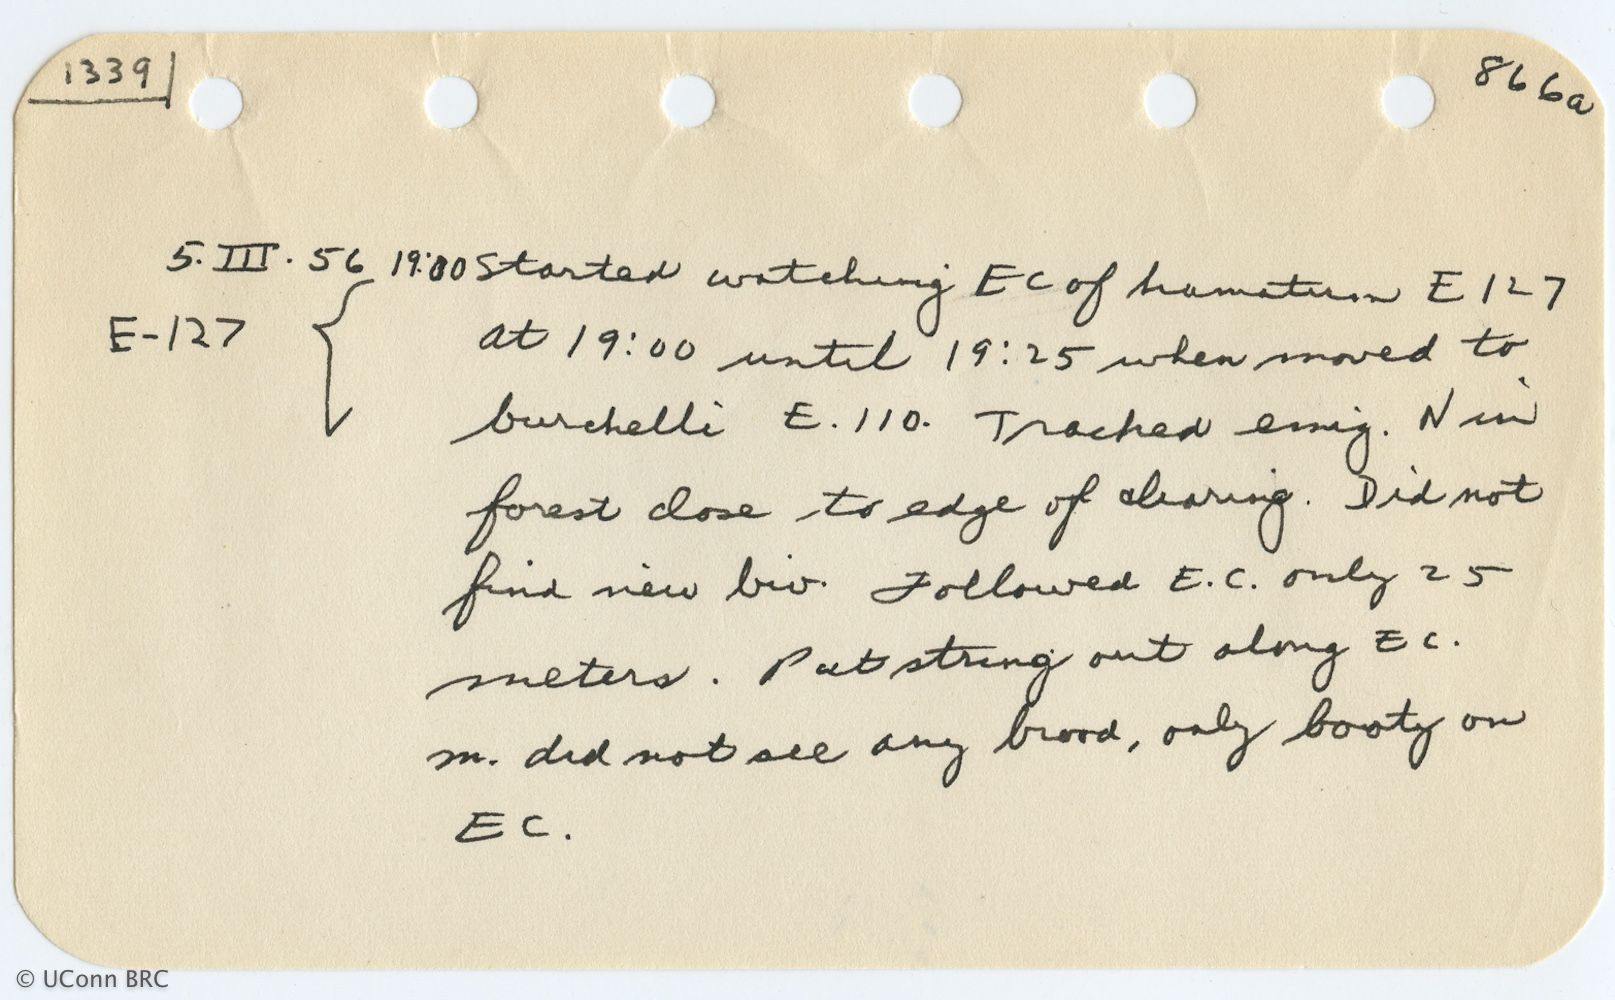 1339
866a
5.III.56 19:00 Started watching EC of hamatum E127
E-127
at 19:00 until 19:25 when moved to
burchelli E.110. Tracked emig. N in
forest close to edge of clearing. Did not
find new biv. Followed E.C. only 25
meters. Put string out along EC.
m. did not see any brood, only booty on
EC.
© UConn BRC